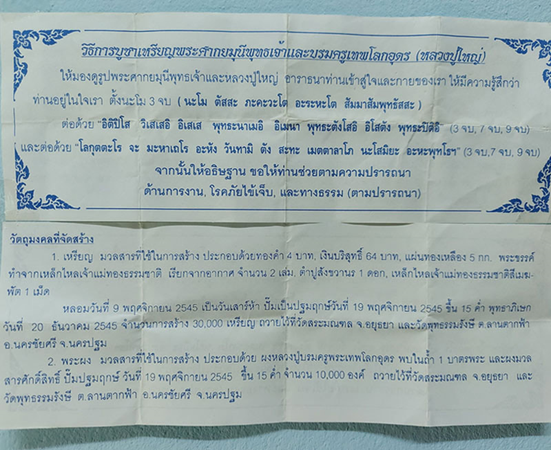 วิธีการบูชาเหรียญพระศากยมุนีพุทธเจ้าและบรมครูเทพโลกอุดร (หลวงปู่ใหญ่)
ให้มองดูรูปพระศากยมุนีพุทธเจ้าและหลวงปู่ใหญ่ อาราธนาท่านเข้าสู่ใจและกายของเรา ให้มีความรู้สึกว่า
ท่านอยู่ในใจเรา ตั้งนะโม 3 จบ (นะโม ตัสสะ ภะคะวะโต อะระหะโต สัมมาสัมพุทธัสสะ)
ต่อด้วย "อิติปิโส วิเสเสอิ อิเสเส พุทธะนาเมอิ อิเมนา พุทธะตังโสอิ อิโสตัง พุทธะปิติอิ" (3 จบ,7 จบ, 9 จบ)
และต่อด้วย "โลกุตตะโร จะ มะหาเถโร อะหัง วันทามิ ตัง สะทะ เมตตาลาโภ นะโสมิยะ อะหะพุทโธฯ" (3 จบ,7 จบ, 9 จบ)
จากนั้นให้อธิษฐาน ขอให้ท่านช่วยตามความปรารถนา
ด้านการงาน, โรคภัยไข้เจ็บ, และทางธรรม (ตามปรารถนา)
วัตถุมงคลที่จัดสร้าง
1. เหรียญ มวลสารที่ใช้ในการสร้าง ประกอบด้วยทองคำ 4 บาท, เงินบริสุทธิ์ 64 บาท, แผ่นทองเหลือง 5 กก. พระขรรค์
ทำจากเหล็กไหลเจ้าแม่ทองธรรมชาติ เรียกจากอากาศ จำนวน 2 เล่ม, ตำปูสังขวานร 1 ดอก, เหล็กไหลเจ้าแม่ทองธรรมชาติสีเมฆ-
พัด 1 เม็ด
หลอมวันที่ 9 พฤศจิกายน 2545 เป็นวันเสาร์ห้า ปั๊มเป็นปฐมฤกษ์วันที่ 19 พฤศจิกายน 2545 ขึ้น 15 ค่ำ พุทธาภิเษก
วันที่ 20 ธันวาคม 2545 จำนวนการสร้าง 30,000 เหรียญ ถวายไว้ที่วัดสระมณฑล จ.อยุธยา และวัดพุทธธรรมรังษี ต.ลานตากฟ้า
อ.นครชัยศรี จ.นครปฐม
2. พระผง มวลสารที่ใช้ในการสร้าง ประกอบด้วย ผงหลวงปู่บรมครูพระเทพโลกอุดร พบในถ้ำ 1 บาตรพระ และผงมวล
สารศักดิ์สิทธิ์ ปั๊มปฐมฤกษ์ วันที่ 19 พฤศจิกายน 2545 ขึ้น 15 ค่ำ จำนวน 10,000 องค์ ถวายไว้ที่วัดสระมณฑล จ.อยุธยา และ
วัดพุทธธรรมรังษี ต.ลานตากฟ้า อ.นครชัยศรี จ.นครปฐม